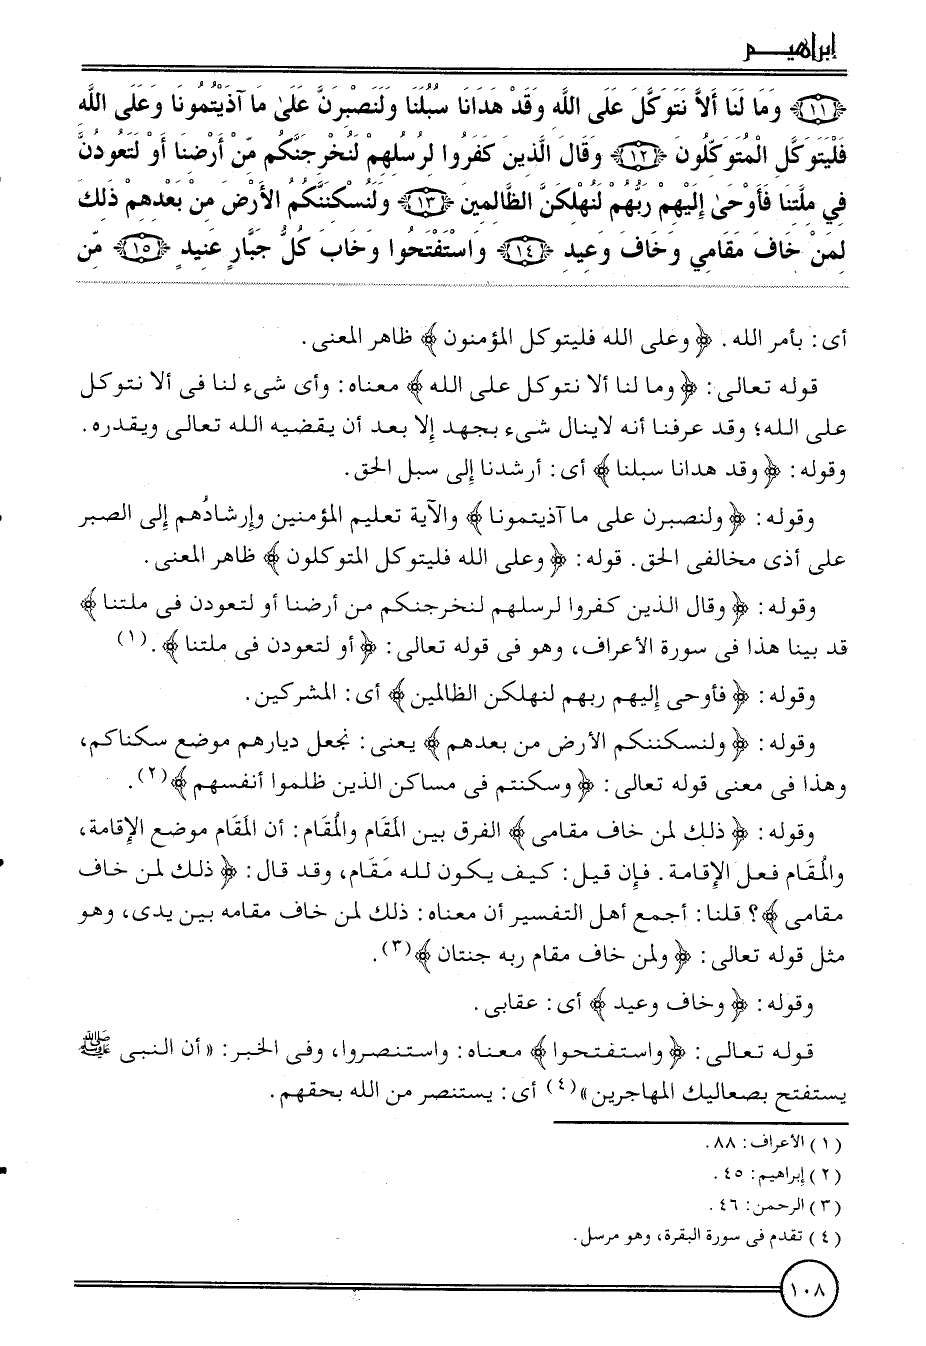 إبراهيم
﴿١١﴾ وَمَا لَنَا أَلاَّ نَتَوَكَّلَ عَلَى اللَّهِ وَقَدْ هَدَانَا سُبُلَنَا وَلَنَصْبِرَنَّ عَلَىٰ مَا آذَيْتُمُونَا وَعَلَى اللَّهِ
فَلْيَتَوَكَّلِ الْمُتَوَكِّلُونَ ﴿١٢﴾ وَقَالَ الَّذِينَ كَفَرُوا لِرُسُلِهِمْ لَنُخْرِجَنَّكُم مِّنْ أَرْضِنَا أَوْ لَتَعُودُنَّ
فِي مِلَّتِنَا فَأَوْحَىٰ إِلَيْهِمْ رَبُّهُمْ لَنُهْلِكَنَّ الظَّالِمِينَ ﴿١٣﴾ وَلَنُسْكِنَنَّكُمُ الأَرْضَ مِنْ بَعْدِهِمْ ذَلِكَ
لِمَنْ خَافَ مَقَامِي وَخَافَ وَعِيدِ ﴿١٤﴾ وَاسْتَفْتَحُوا وَخَابَ كُلُّ جَبَّارٍ عَنِيدٍ ﴿١٥﴾ مِّن
أى: بأمر الله. ﴿وعلى الله فليتوكل المؤمنون﴾ ظاهر المعنى.
قوله تعالى: ﴿وما لنا ألا نتوكل على الله﴾ معناه: وأى شىء لنا فى ألا نتوكل
على الله؛ وقد عرفنا أنه لاينال شىء بجهد إلا بعد أن يقضيه الله تعالى ويقدره.
وقوله: ﴿وقد هدانا سبلنا﴾ أى: أرشدنا إلى سبل الحق.
وقوله: ﴿ولنصبرن على ما آذيتمونا﴾ والآية تعليم المؤمنين وإرشادُهم إلى الصبر
على أذى مخالفى الحق. قوله: ﴿وعلى الله فليتوكل المتوكلون﴾ ظاهر المعنى.
وقوله: ﴿وقال الذين كفروا لرسلهم لنخرجنكم من أرضنا أو لتعودن فى ملتنا﴾
قد بينا هذا فى سورة الأعراف، وهو فى قوله تعالى: ﴿أو لتعودن فى ملتنا﴾.(١)
وقوله: ﴿فأوحى إليهم ربهم لنهلكن الظالمين﴾ أى: المشركين.
وقوله: ﴿ولنسكننكم الأرض من بعدهم﴾ يعنى: نجعل ديارهم موضع سكناكم،
وهذا فى معنى قوله تعالى: ﴿وسكنتم فى مساكن الذين ظلموا أنفسهم﴾(٢).
وقوله: ﴿ذلك لمن خاف مقامى﴾ الفرق بين المَقام والمُقام: أن المَقام موضع الإقامة،
والمُقام فعل الإقامة. فإن قيل: كيف يكون لله مَقام، وقد قال: ﴿ذلك لمن خاف
مقامى﴾؟ قلنا: أجمع أهل التفسير أن معناه: ذلك لمن خاف مقامه بين يدى، وهو
مثل قوله تعالى: ﴿ولمن خاف مقام ربه جنتان﴾(٣).
وقوله: ﴿وخاف وعيد﴾ أى: عقابى.
قوله تعالى: ﴿واستفتحوا﴾ معناه: واستنصروا، وفى الخبر: «أن النبى ﷺ
يستفتح بصعاليك المهاجرين»(٤) أى: يستنصر من الله بحقهم.
(١) الأعراف: ٨٨.
(٢) إبراهيم: ٤٥.
(٣) الرحمن: ٤٦.
(٤) تقدم فى سورة البقرة، وهو مرسل.
١٠٨